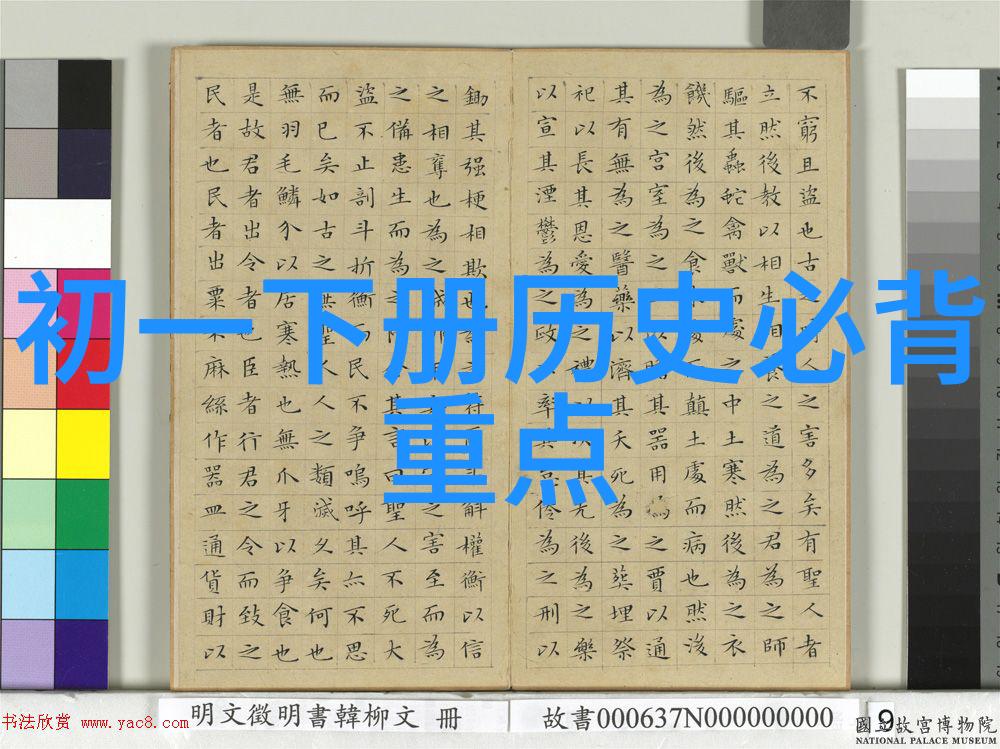 初一下册历史必背
重点
不窮且盜也古之時人之害多矣有聖人者
立然後教以相生相養之道為之君為之師
驅其蟲蛇禽獸而處之中土寒然後為之衣
饑然後為之食木處而顛土處而病也然後
為之宮室為之以其器用為之賈以通
其有無為之醫藥以濟其夭死為之葬埋祭
祀以長其恩愛為之禮以其先後為之樂
以宣其湮鬱為之政率其怠為之刑以
鋤其强梗相欺也為之符斛權衡以信
之相奪也為之城之害至而為
之備患生而為之今其言曰聖人不死大
盜不止剖斗折衡而民不爭嗚呼其亦不思
而已矣如古之無聖人人之類滅久矣何也
無羽毛鱗介以居寒熱也無爪牙以爭食也
是故君者出令者也臣者行君之令而致之
民者也民者出粟米麻絲作器皿通貨財以
明文徵明書韓柳文 冊
故書000637N000000000
9
書法欣賞 www.yac8.com
國立故宮博物院
NATIONAL PALACE MUSEUM